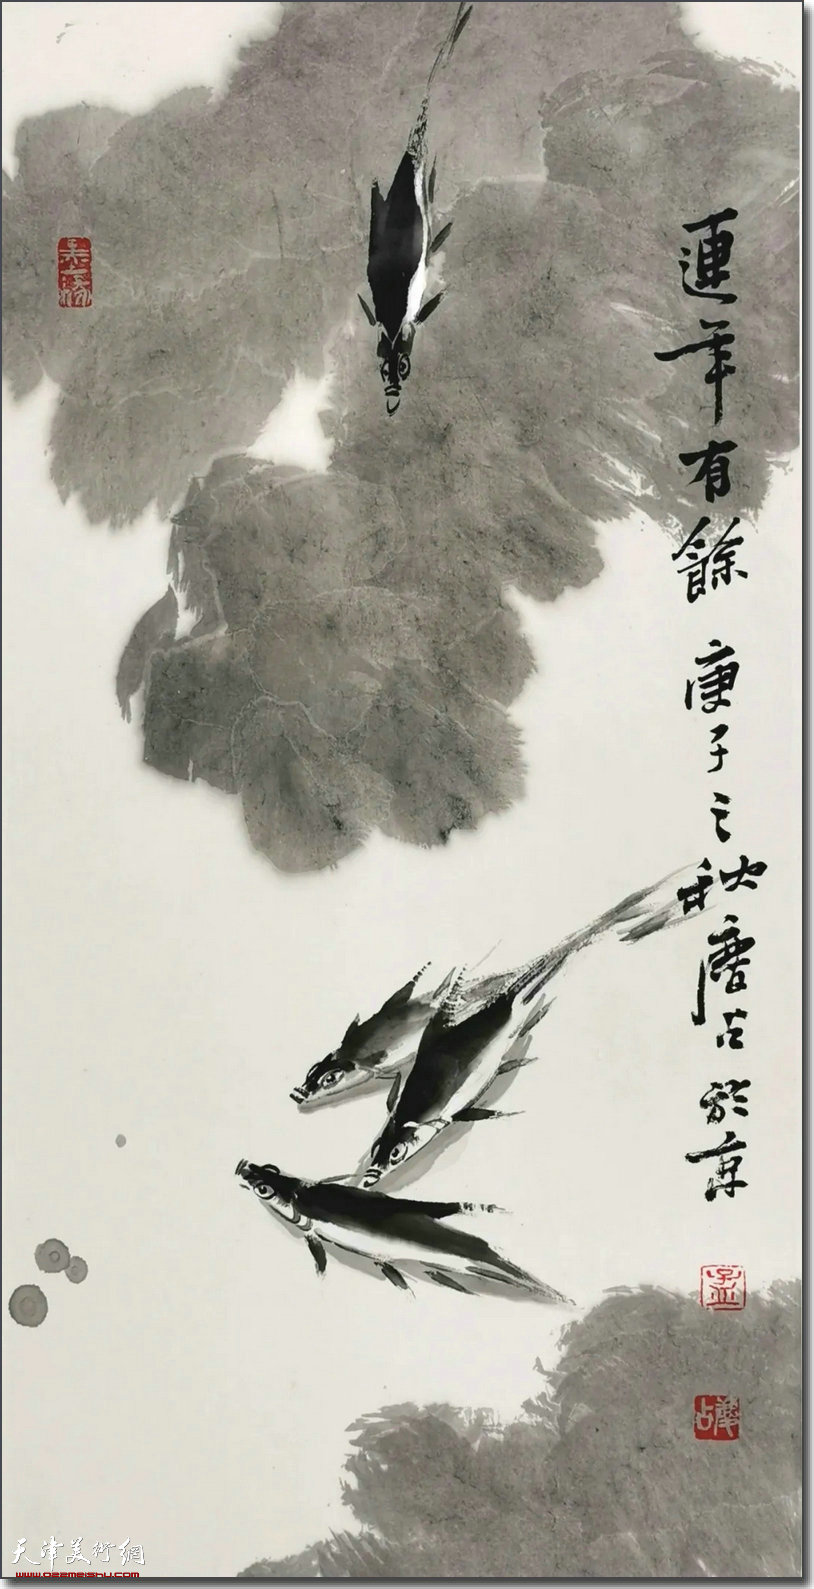 連年有餘 庚子之秋唐占於京
天津美術網
www.022meishu.com